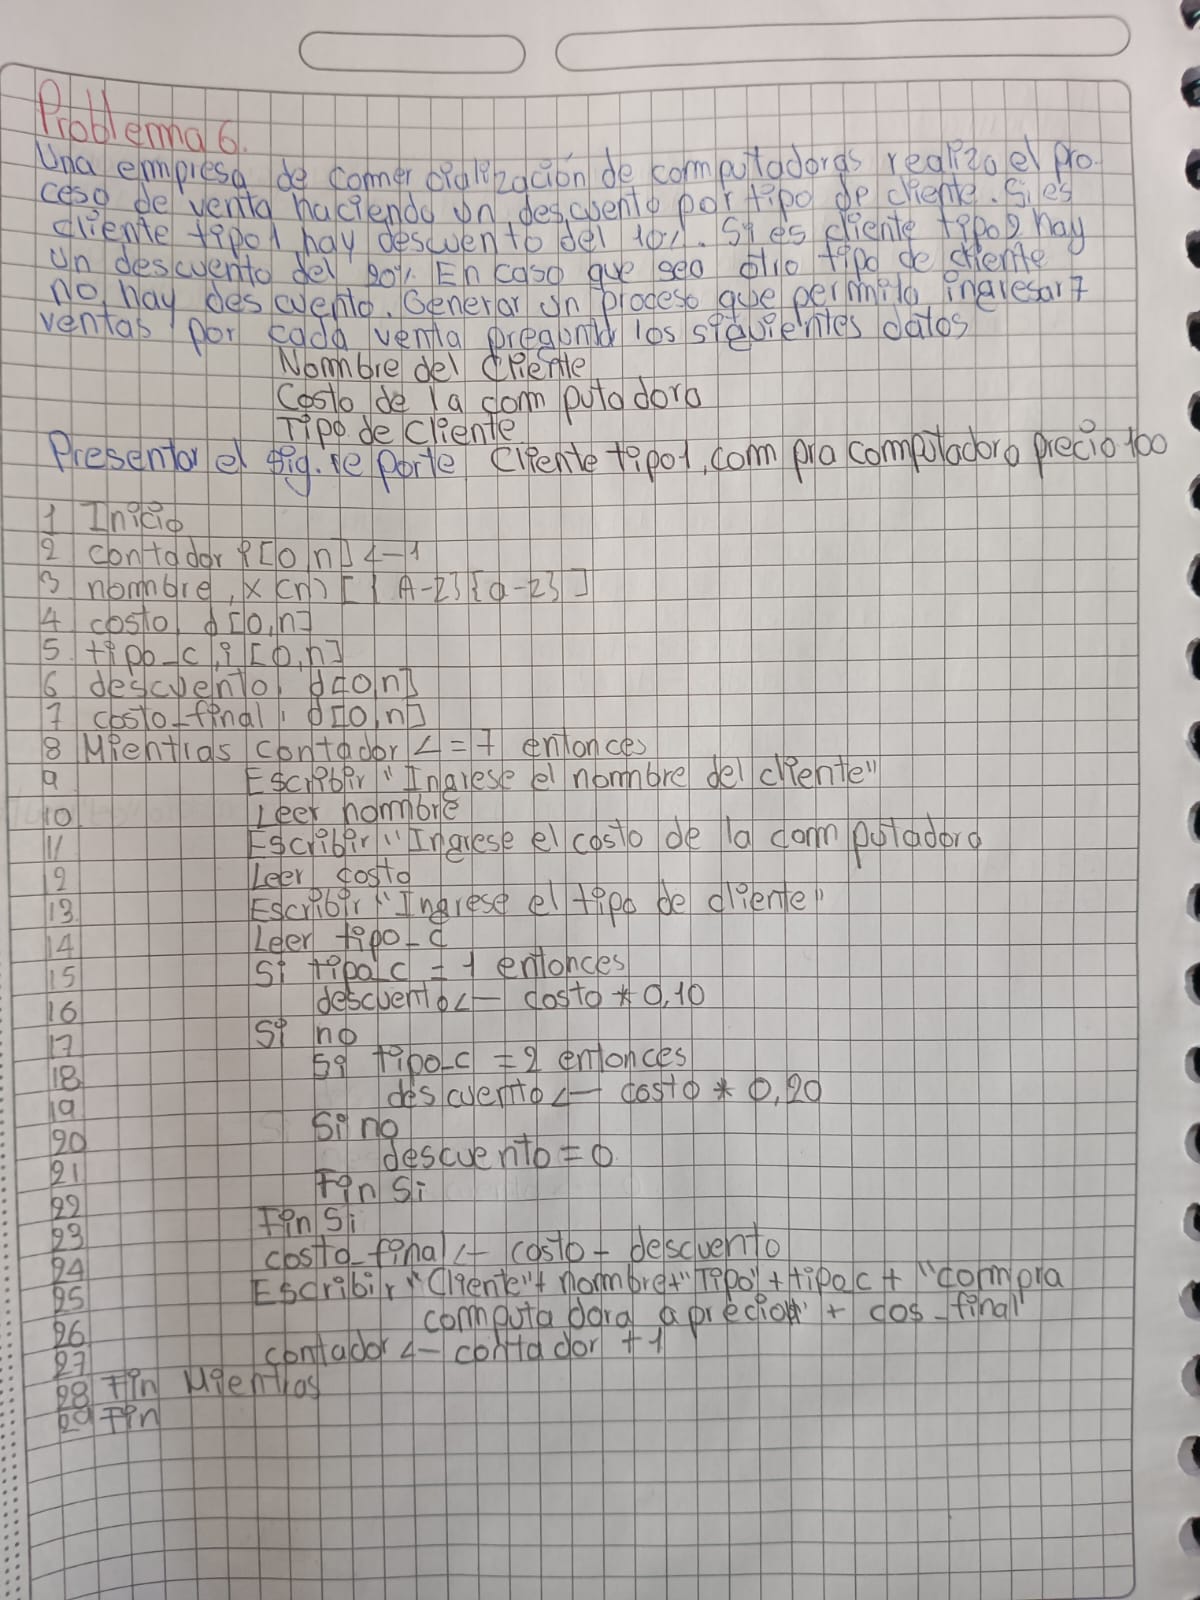 Problema 6.
Una empresa de comercialización de computadoras realiza el pro
ceso de venta haciendo un descuento por tipo de cliente. Si es
cliente tipo 1 hay descuento del 10%. Si es cliente tipo 2 hay
un descuento del 20%. En caso que sea otro tipo de cliente
no hay descuento. Generar un proceso que permita ingresar 7
ventas por cada venta pregunta los siguientes datos
Nombre del Cliente
Costo de la computadora
Tipo de cliente
Presentar el sig. reporte Cliente tipo 1, compra computadora precio 100
1 Inicio
2 contador i [0,n] <- 1
3 nombre, x (n) [{A-Z}{a-z}]
4 costo, d [0,n]
5 tipo_c, i [0,n]
6 descuento, d [0,n]
7 costo_final, d [0,n]
8 Mientras contador <= 7 entonces
9 Escribir "Ingrese el nombre del cliente"
10 Leer nombre
11 Escribir "Ingrese el costo de la computadora
12 Leer costo
13 Escribir "Ingrese el tipo de cliente"
14 Leer tipo_c
15 Si tipo_c = 1 entonces
16 descuento <- costo * 0,10
17 Si no
18 Si tipo_c = 2 entonces
19 descuento <- costo * 0,20
20 Si no
21 descuento = 0
22 Fin Si
23 Fin Si
24 costo_final <- costo - descuento
25 Escribir "Cliente" + nombre + "Tipo" + tipo_c + "compra
26 computadora a precio" + cos_final
27 contador <- contador + 1
28 Fin Mientras
29 Fin